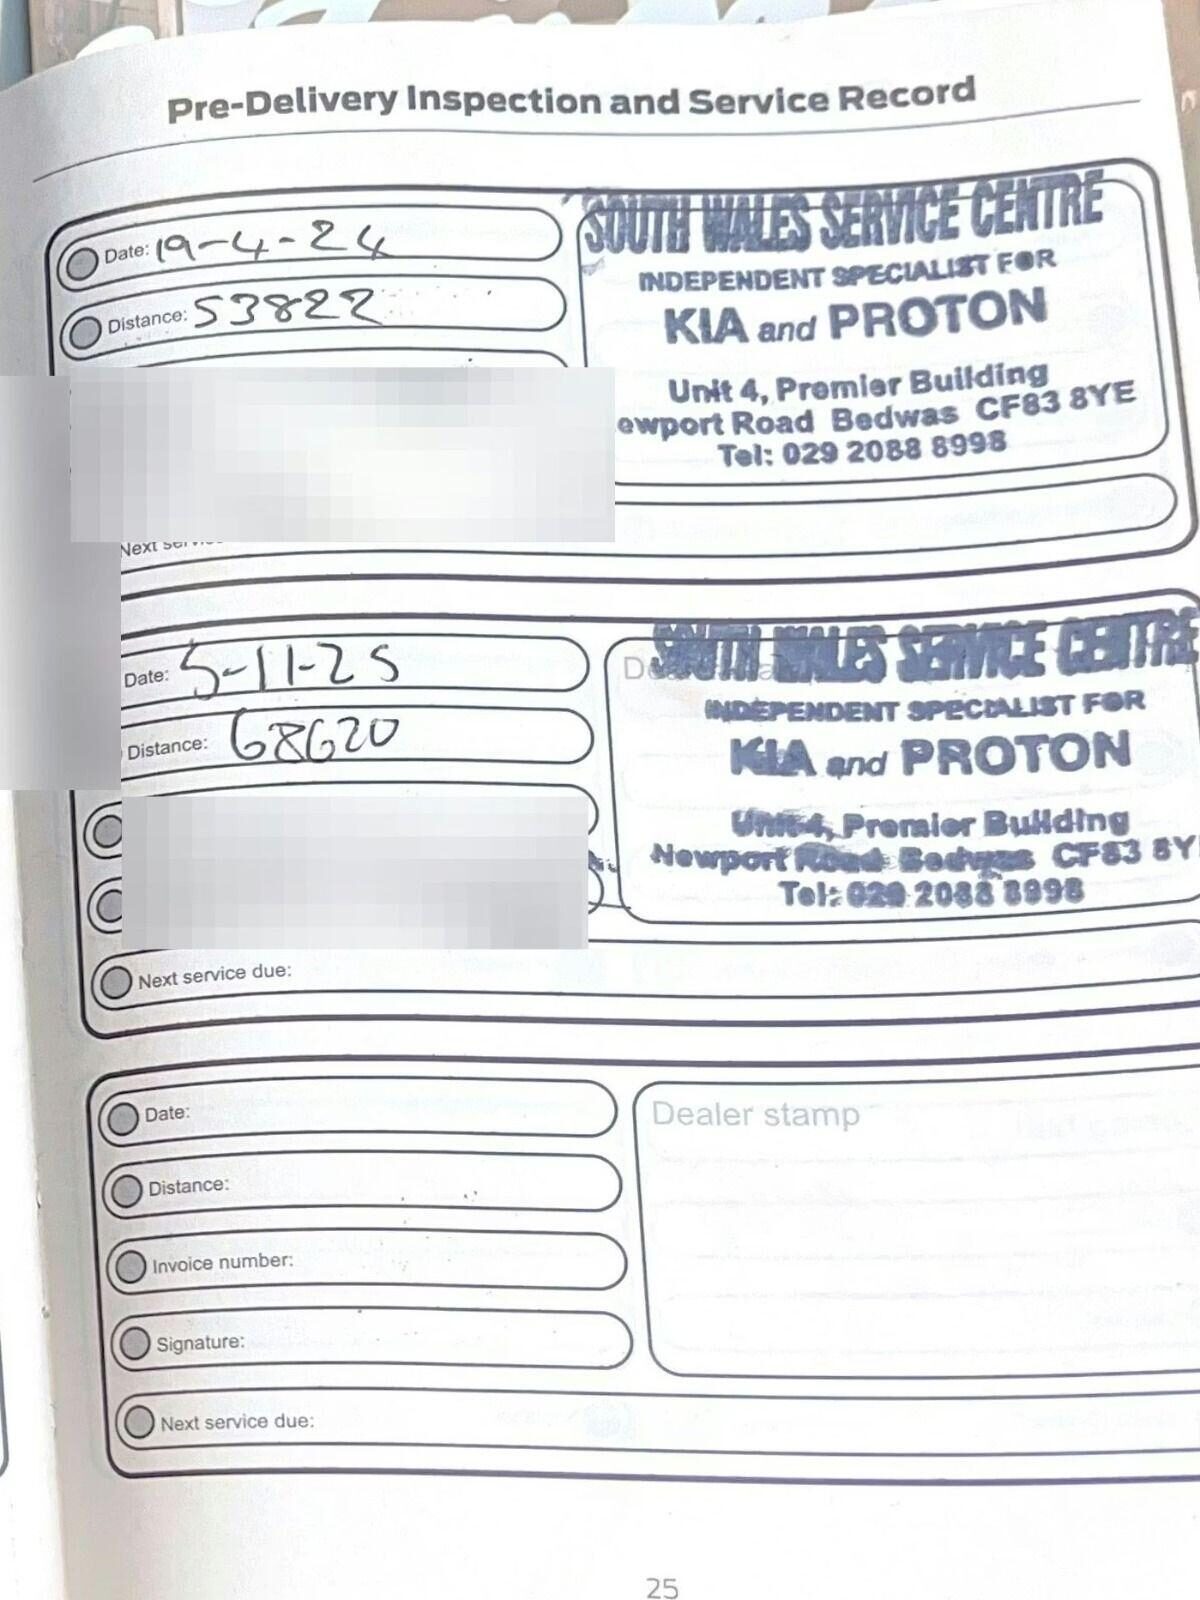 Pre-Delivery Inspection and Service Record
Date: 19-4-24
Distance: 53822
SOUTH WALES SERVICE CENTRE
INDEPENDENT SPECIALIST FOR
KIA and PROTON
Unit 4, Premier Building
ewport Road Bedwas CF83 8YE
Tel: 029 2088 8998
Next
Date: 5-11-25
Distance: 68620
SOUTH WALES SERVICE CENTRE
INDEPENDENT SPECIALIST FOR
KIA and PROTON
Unit 4, Premier Building
Newport Road Bedwas CF83 8Y
Tel: 029 2088 8998
Next service due:
Date:
Dealer stamp
Distance:
Invoice number:
Signature:
Next service due:
25